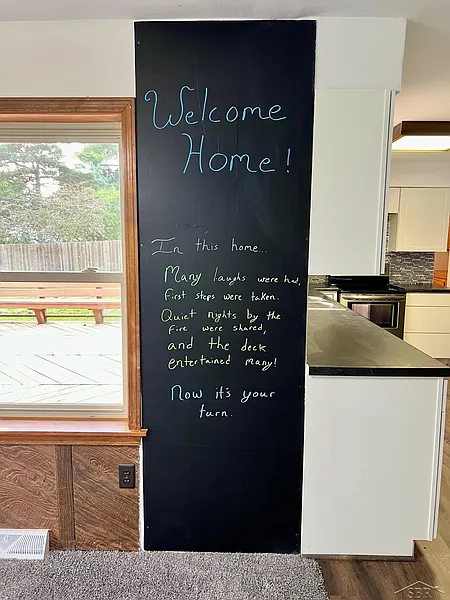 Welcome
Home!
In this home...
Many laughs were had,
First steps were taken.
Quiet nights by the
fire were shared,
and the deck
entertained many!
Now it's your
turn.
SBR